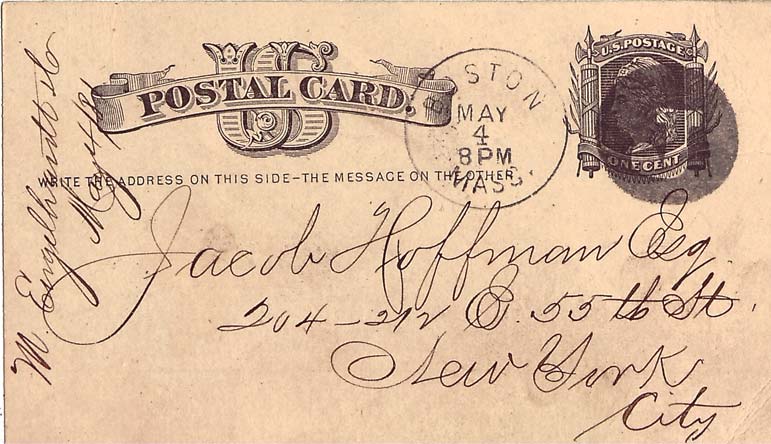 US
POSTAL CARD.
BOSTON
MASS.
MAY
4
8PM
U.S. POSTAGE
ONE CENT
WRITE THE ADDRESS ON THIS SIDE-THE MESSAGE ON THE OTHER
Jacob Hoffman Esq.
204-212 E. 55th St.
New York
City
M. Engelhardt & Co
May 4/81